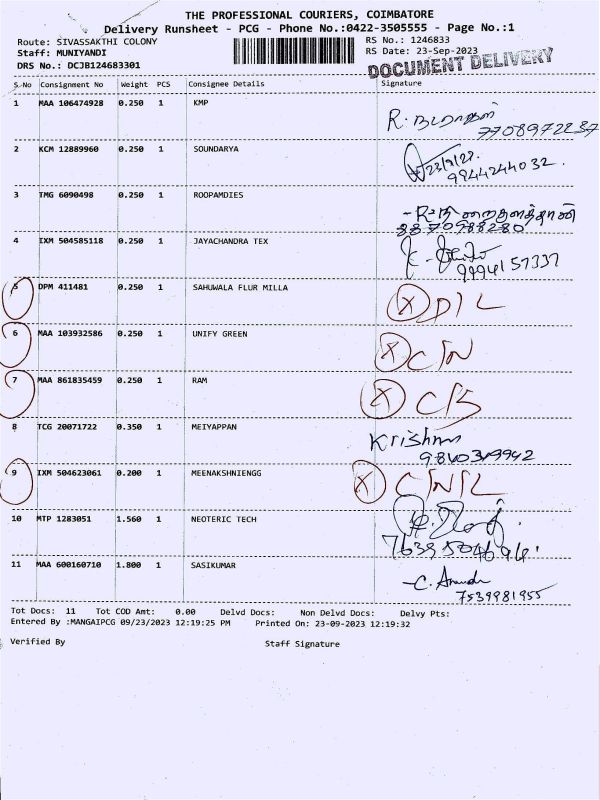 THE PROFESSIONAL COURIERS, COIMBATORE
Delivery Runsheet - PCG - Phone No.:0422-3505555 - Page No.:1
Route: SIVASSAKTHI COLONY RS No.: 1246833
Staff: MUNIYANDI RS Date: 23-Sep-2023
DRS No.: DCJB124683301 DOCUMENT DELIVERY
S.No Consignment No Weight PCS Consignee Details Signature
1 MAA 106474928 0.250 1 KMP R.
7708972237
2 KCM 12889960 0.250 1 SOUNDARYA 23/9/23.
9944244032.
3 TMG 6090498 0.250 1 ROOPAMDIES
8870988280
4 IXM 504585118 0.250 1 JAYACHANDRA TEX
9994157337
5 DPM 411481 0.250 1 SAHUWALA FLUR MILLA X D/L
6 MAA 103932586 0.250 1 UNIFY GREEN X C/N
7 MAA 861835459 0.250 1 RAM X C/S
8 TCG 20071722 0.350 1 MEIYAPPAN Krishna
9 IXM 504623061 0.200 1 MEENAKSHNIENGG X C/N/L
10 MTP 1283051 1.560 1 NEOTERIC TECH
11 MAA 600160710 1.800 1 SASIKUMAR C.
7539981955
Tot Docs: 11 Tot COD Amt: 0.00 Delvd Docs: Non Delvd Docs: Delvy Pts:
Entered By :MANGAIPCG 09/23/2023 12:19:25 PM Printed On: 23-09-2023 12:19:32
Verified By Staff Signature